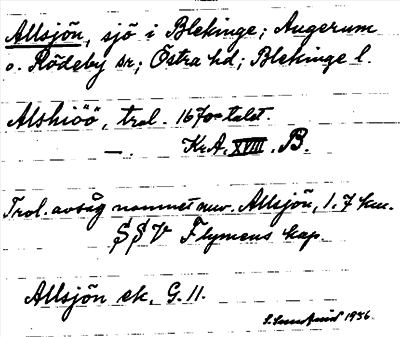 Allsjön, sjö i Blekinge; Augerum
o. Rödeby sr; Östra hd; Blekinge l.
Alshiöö, trol. 1670-talet.
— . KrA. XVIII. B.
Trol. avsåg namnet nuv. Allsjön, 1.7 km.
SSV Flymens kap.
Allsjön ek, G. 11.
1936.